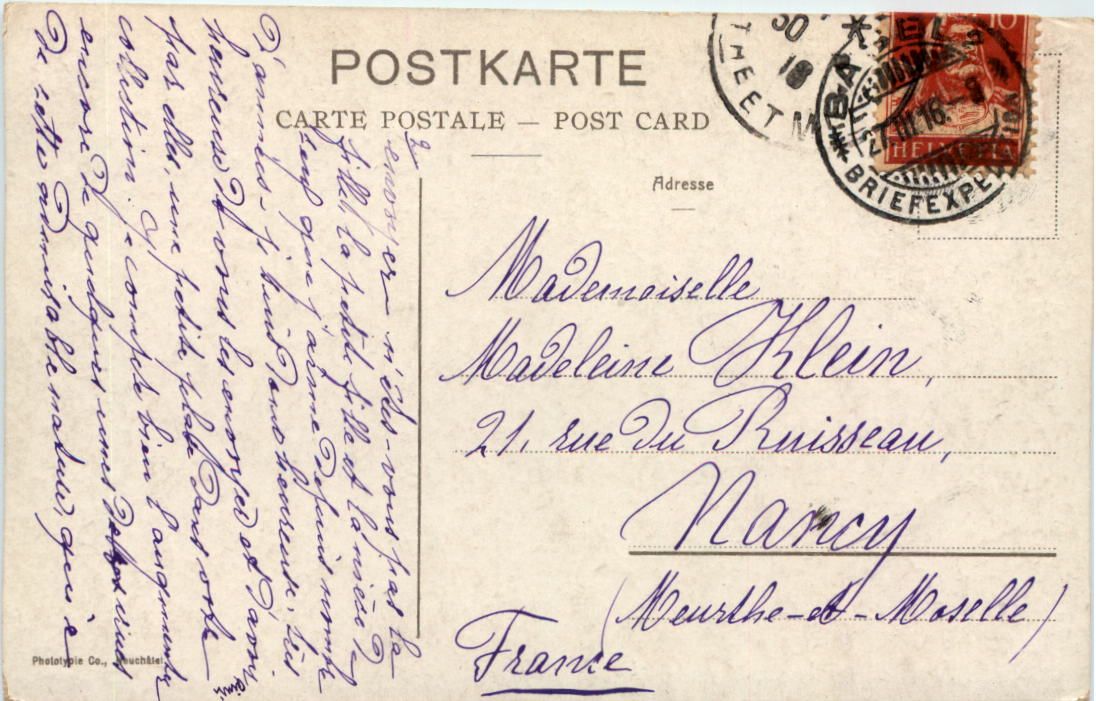 POSTKARTE
CARTE POSTALE — POST CARD
Adresse
Mademoiselle
Madeleine Klein,
21, rue du Ruisseau,
Nancy
(Meurthe-et-Moselle)
France
2
envoyer – n'êtes-vous pas la
fille, la petite fille et la nièce de
ceux que j'aime depuis nombre
d'années – je suis donc heureuse, très
heureuse de vous les envoyer et d'avoir
par elles, une petite place dans votre
collection. Je compte bien l'augmenter
encore de quelques unes des vues
de cette admirable nature, qui e
Phototypie Co., Neuchâtel
10
HELVETIA
BASEL
27.III.16.
BRIEFEXPE
30
16